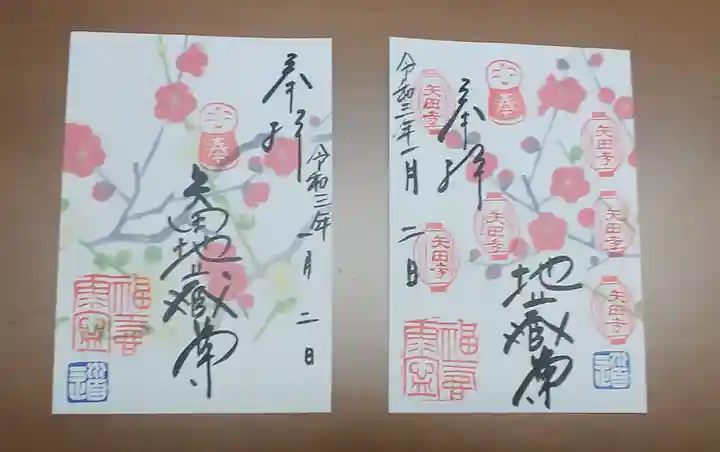 奉拝
令和三年一月二日
矢田地蔵尊
令和三年一月二日
奉拝
地蔵尊
矢田寺
矢田寺
矢田寺
矢田寺
矢田寺
矢田寺